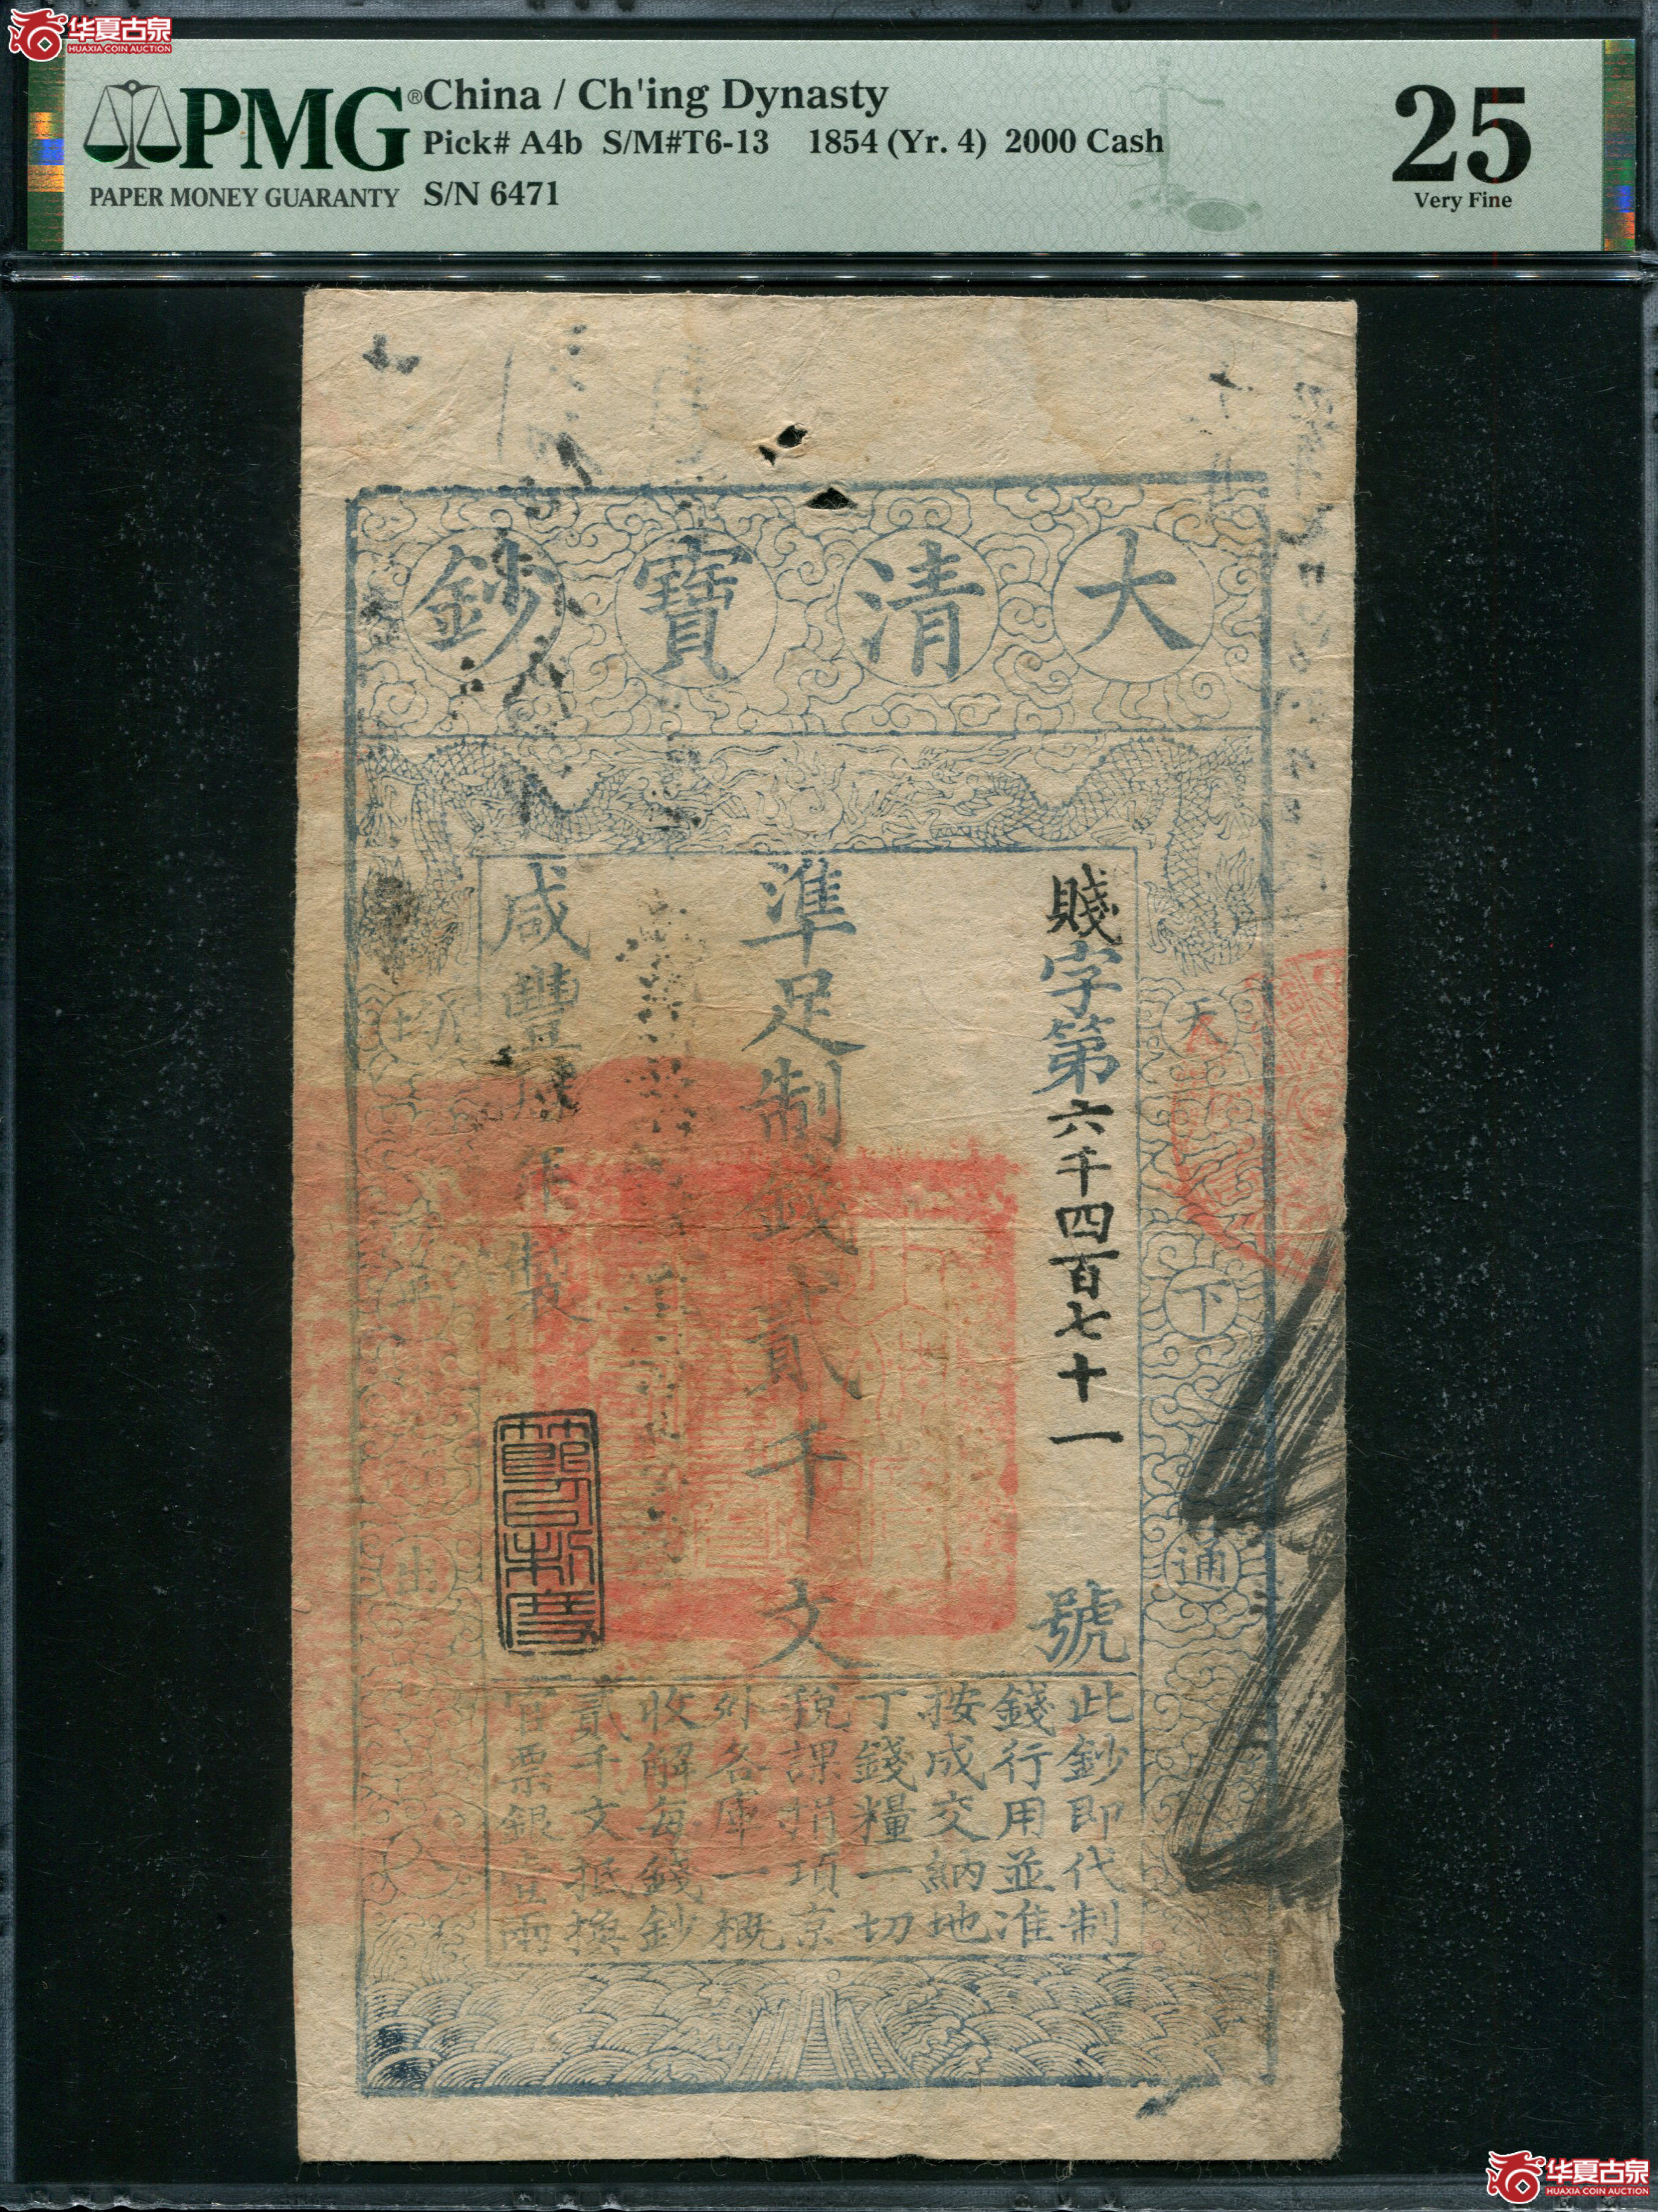 华夏古泉
HUAXIA COIN AUCTION
PMG®
PAPER MONEY GUARANTY
China / Ch'ing Dynasty
Pick# A4b S/M#T6-13 1854 (Yr. 4) 2000 Cash
S/N 6471
25
Very Fine
大清寶鈔
天下通
賤字第六千四百七十一號
準足制錢貳千文
咸豐肆年製
此鈔即代制
錢行用並准
按成交納地
丁錢糧一切
稅課捐項京
外各庫一概
收解每錢鈔
貳千文抵換
官票銀壹兩
出
华夏古泉
HUAXIA COIN AUCTION